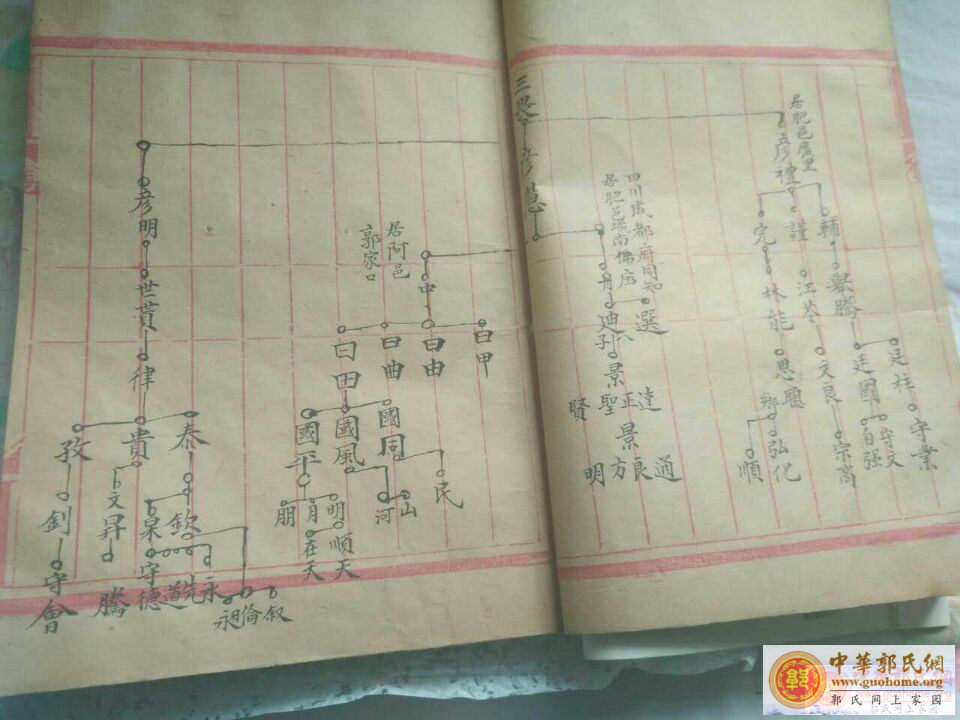 三畏
居肥邑廣里
彦禮
輔
謹
完
舉騰
江苓
林能
廷柱
廷國
文良
思聰
守業
守文
自强
宗高
鄉
弘化
順
彦聰
四川成都府同知
居肥邑城南儒庄
丹
選
迪
列
景
達
正
聖
賢
景
通
良
方
明
居阿邑
郭家口
中
曰甲
曰由
曰曲
曰田
國同
國風
國平
民
山
河
明
月
朋
順天
在天
彦明
世貫
律
泰
貴
孜
欽
杲
文昇
釗
永
先
道
守德
騰
守會
叙
倫
永
中華郭氏網
www.guohome.org
郭氏网上家园